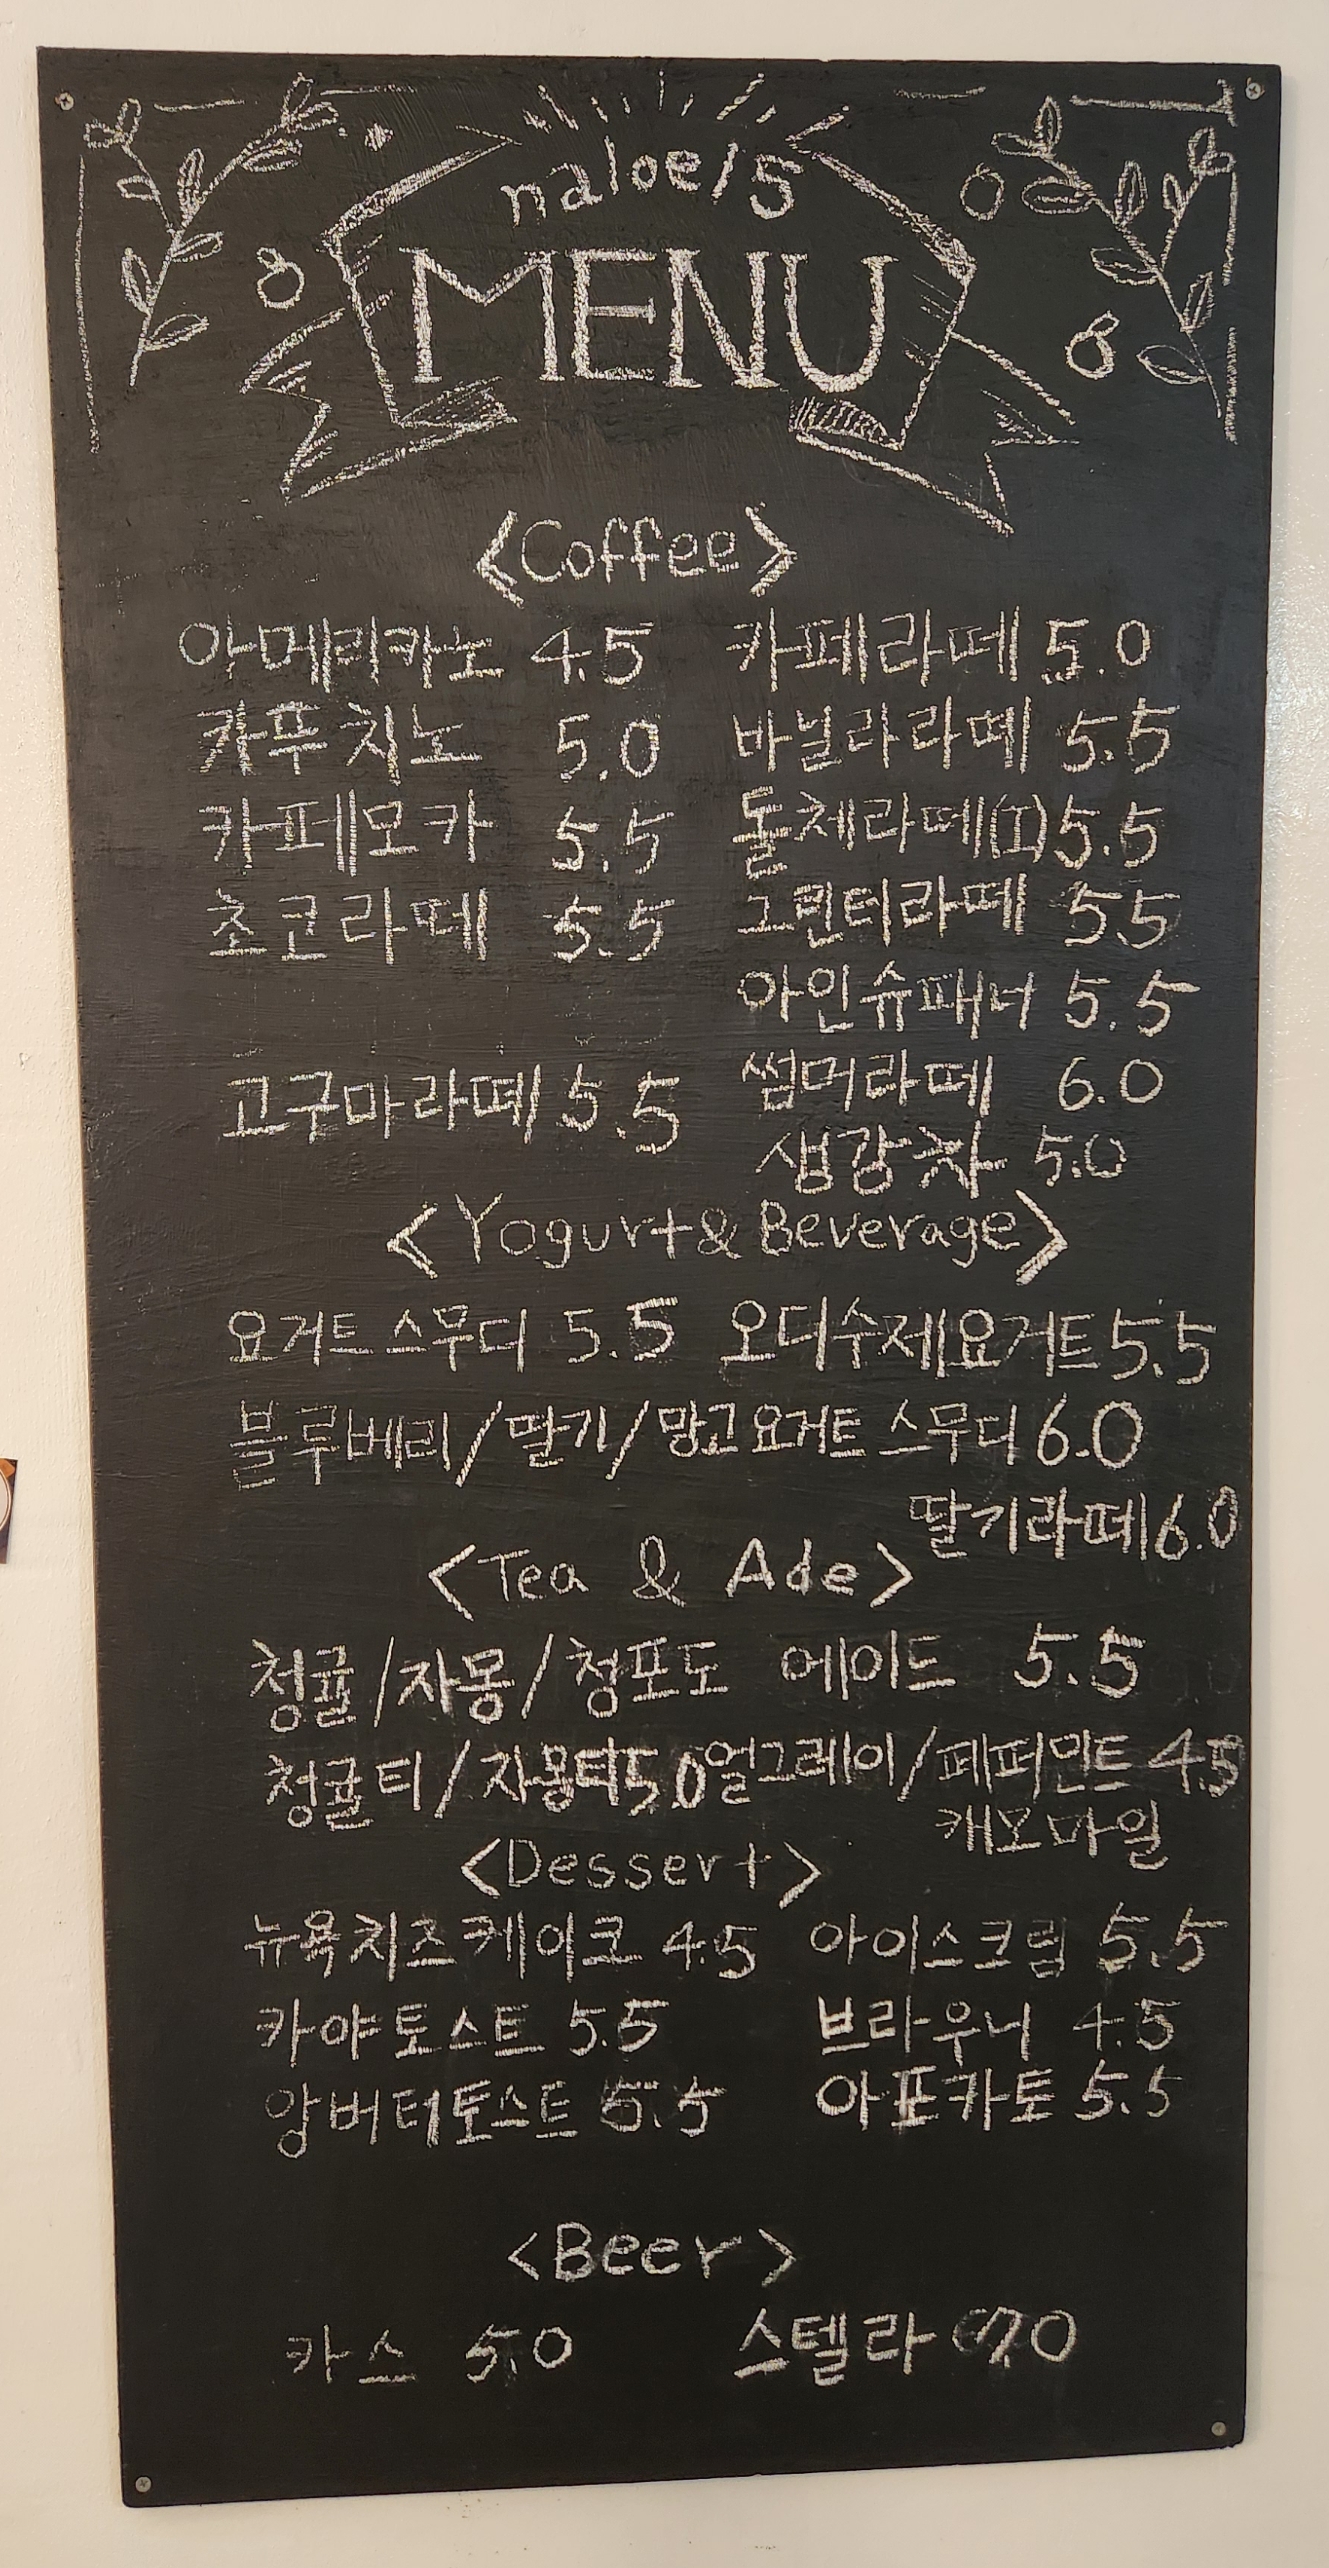 naloe15
MENU
<Coffee>
아메리카노 4.5 카페라떼 5.0
카푸치노 5.0 바닐라라떼 5.5
카페모카 5.5 돌체라떼(I) 5.5
초코라떼 5.5 그린티라떼 55
아인슈패너 5.5
고구마라떼 5.5 썸머라떼 6.0
생강차 5.0
<Yogurt & Beverage>
요거트 스무디 5.5 오디수제요거트 5.5
블루베리/딸기/망고요거트 스무디 6.0
딸기라떼 6.0
<Tea & Ade>
청귤/자몽/청포도 에이드 5.5
청귤티/자몽티 5.0 얼그레이/페퍼민트 4.5
캐모마일
<Dessert>
뉴욕치즈케이크 4.5 아이스크림 5.5
카야토스트 5.5 브라우니 4.5
앙버터토스트 5.5 아포카토 5.5
<Beer>
카스 5.0 스텔라 7.0